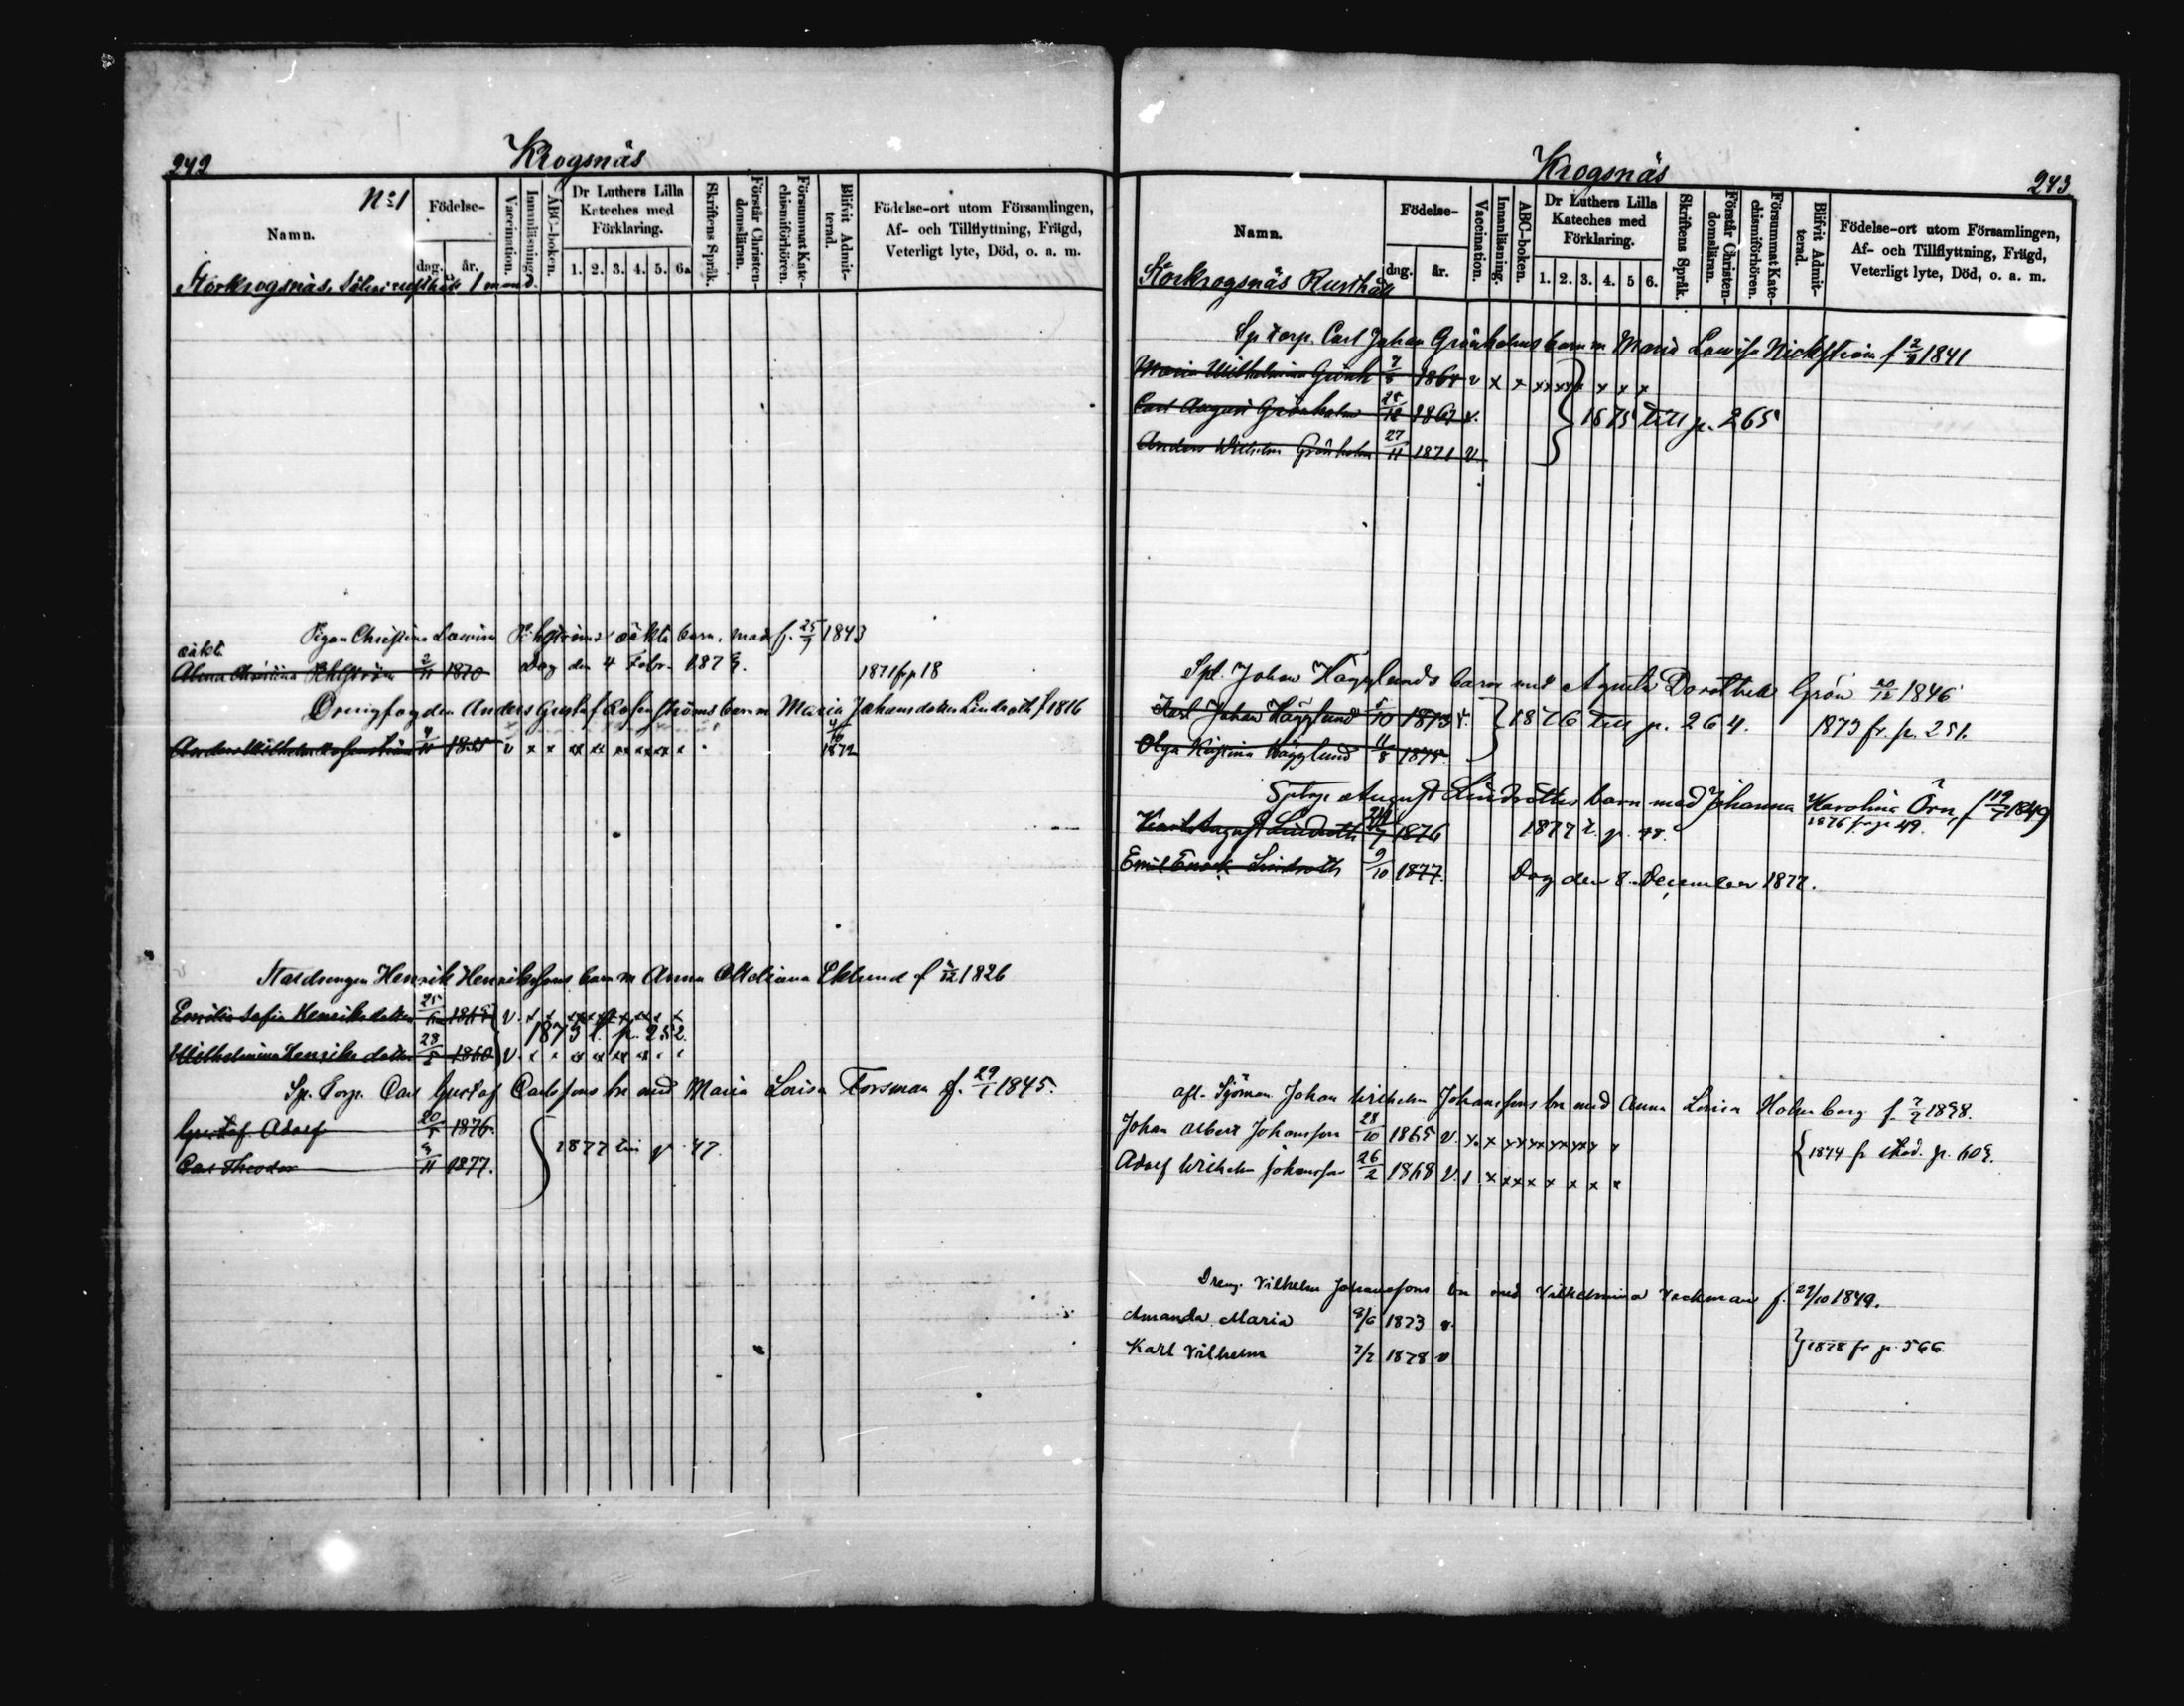 242
Krogsnäs
No 1
Namn.
Födelse-
dag.
år.
Vaccination.
Innanläsning.
ABC-boken.
Dr Luthers Lilla
Kateches med
Förklaring.
1. 2. 3. 4. 5. 6.
Skriftens Språk.
Förstår Christen-
domsläran.
Försummat Kate-
chismiförhören.
Blifvit Admit-
terad.
Födelse-ort utom Församlingen,
Af- och Tillflyttning, Frägd,
Veterligt lyte, Död, o. a. m.
Storkrogsnäs Säteri rusthåll 1 mand.
Pigan Christina Lovisa oäkta barn, f. 25/9 1843
oäkt.
Alma Christina 2/11 1870 Dog den 4 Febr. 1871 fr p 18
Drengfogden Anders Gustaf Rosenströms barn m Maria Johansdotter Lindroth f 1816
Anders Wilhelm Rosenström 1855 v x x xx xx xx xx xx x 1872
Statdrengen Henrik Henrikssons barn m Anna Eklund f 1826
Emilia Sofia Henriksdotter 25/6 v. x x
1875 t. p. 252.
Wilhelmina Henriksdotter 1860 v. x x
Sp. Torp. Carl Gustaf Carlssons bn med Maria Lovisa Forsman f. 29/1 1845.
Gustaf Adolf 20/5 1876.
1877 till p. 47.
Carl Theodor 1877.
Krogsnäs
243
Namn.
Födelse-
dag.
år.
Vaccination.
Innanläsning.
ABC-boken.
Dr Luthers Lilla
Kateches med
Förklaring.
1. 2. 3. 4. 5 6.
Skriftens Språk.
Förstår Christen-
domsläran.
Försummat Kate-
chismiförhören.
Blifvit Admit-
terad.
Födelse-ort utom Församlingen,
Af- och Tillflyttning, Frägd,
Veterligt lyte, Död, o. a. m.
Storkrogsnäs Rusthåll
Sp torp. Carl Johan Grönholms barn m Maria Lovisa Nickström f 2/9 1841
Maria Wilhelmina Grönh 1864 v x x xx xx x x x x
Carl August Grönholm 25/12 1867 v. 1875 till p. 265
Anders Wilhelm Grönholm 27/11 1871 v.
Spt. Johan Hägglunds barn med Agneta Dorothea Grön 20/12 1846
Karl Johan Hägglund 5/10 1873 v. 1876 till p. 264. 1873 fr. p. 251.
Olga Kristina Hägglund 11/8 1875.
Sptorp. August Lindroths barn med Johanna Karolina Örn, f 19/7 1849
Karl August Lindroth 1876 1877 t. p. 48. 1876 fr p 49.
Emil Enock Lindroth 9/10 1877. Dog den 8 December 1877.
afl. Sjöman Johan Wilhelm Johanssons bn med Anna Lovisa Holmberg f. 7/9 1838.
Johan Albert Johansson 28/10 1865 v. x x xx xx xx xx x
1874 fr p. 603.
Adolf Wilhelm Johansson 26/2 1868 v. x x xx x x x x x
Dreng. Vilhelm Johanssons bn med Vilhelmina Veckman f. 27/10 1849.
Amanda Maria 9/6 1873 v.
Karl Vilhelm 7/7 1878 v 1878 fr p. 566.